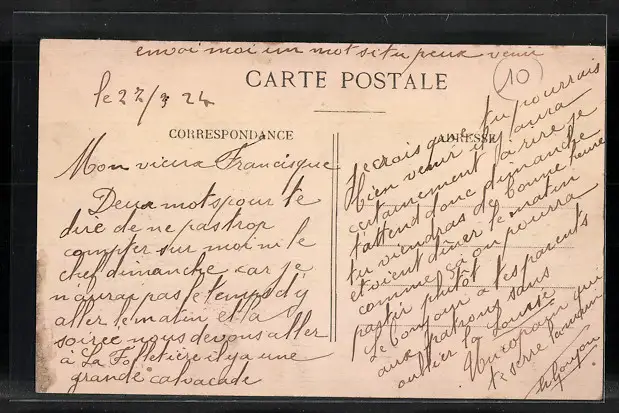 envoi moi un mot si tu peux venir
10
CARTE POSTALE
le 27/3 24
CORRESPONDANCE
ADRESSE
Mon vieux Francisque
Deux mots pour te
dire de ne pas trop
compter sur moi ni le
chef dimanche car je
n'aurai pas le temps d'y
aller le matin et la
soirée nous devons aller
à La Folletière il y a une
grande calvacade
je crois que tu pourrais
bien venir il y aura
certainement à rire je
t'attend donc dimanche
tu viendras de bonne heure
et vient diner le matin
comme ça on pourra
partir plutôt
Le bonjour à tes parents
aux patrons sans
oublier la
Un copain qui
te serre la main